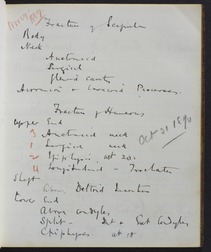 Fracture of Scapula
Body
Neck
Anatomical
Surgical
Glenoid cavity
Acromion & Coracoid Processes.
Fracture of Humerus
Upper End
3 Anatomical neck
1 Surgical neck
2 Epiphysis. at 20.
4 Longitudinal
Oct 21 1890
Shaft
Above Deltoid Insertion
Lower End
Above Condyles
Split - Int & Ext Condyles
Epiphyses. at 18